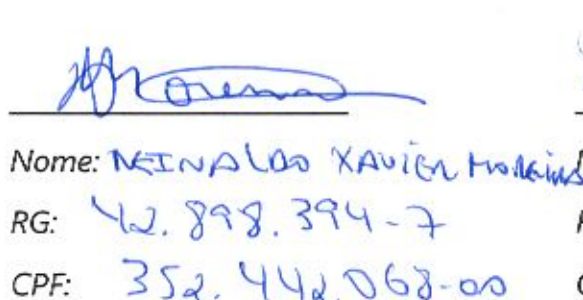 Nome: REINALDO XAVIER MOREIRA
RG: 42.898.394-7
CPF: 352.442.068-00